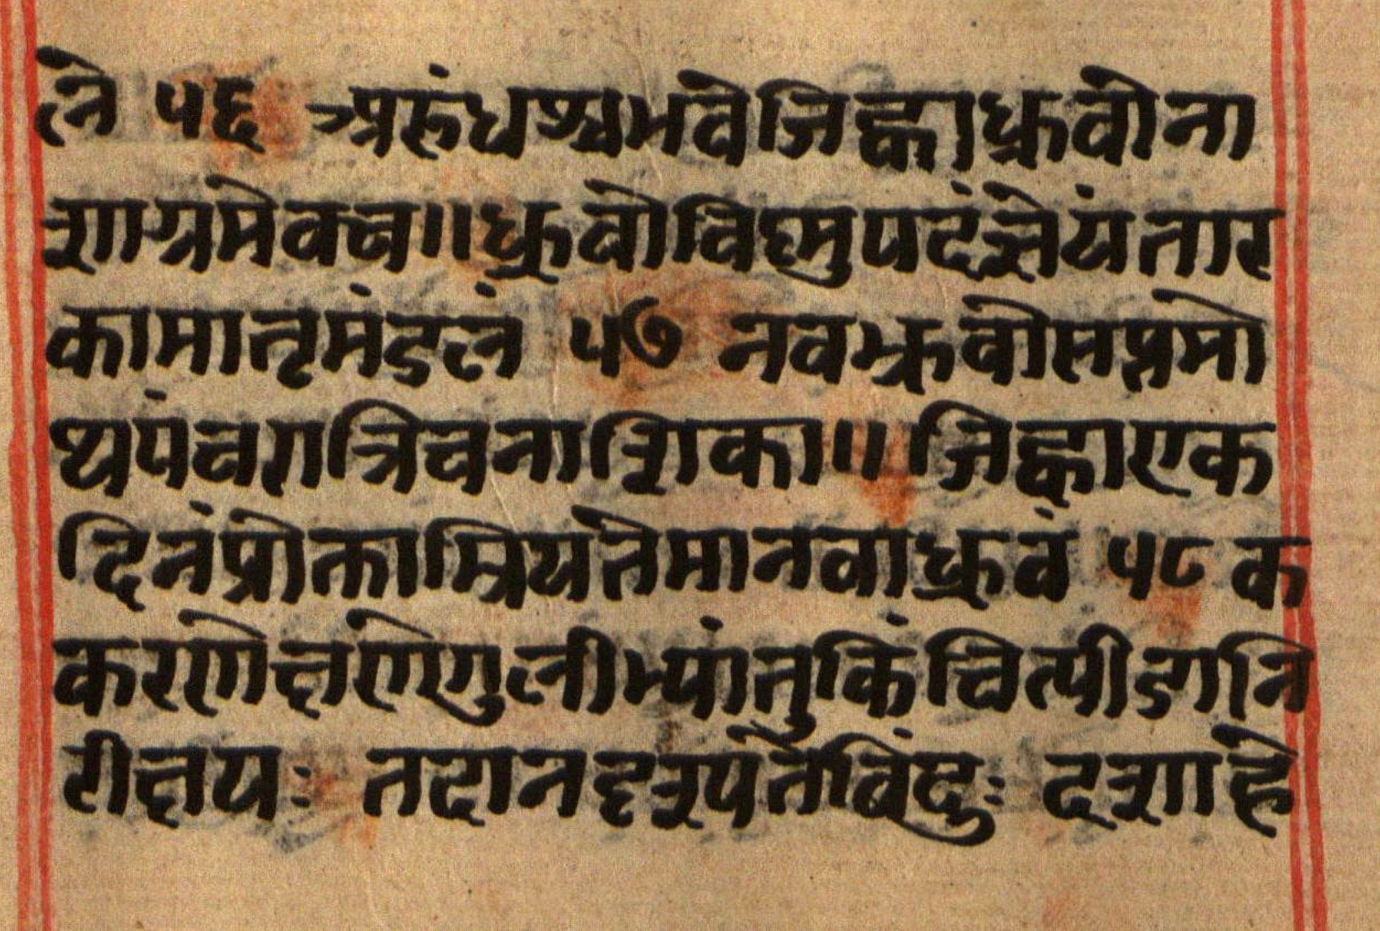 त्ने ५६ अरुंधश्चभवेजिह्वाध्रुवोना
शाग्रमेवच॥ध्रुवोविष्णुपदंज्ञेयंतार
कामातृमंडलं ५७ नवभ्रुवोसप्तमो
थपंचरात्रिचनाशिका॥जिह्वाएक
दिनंप्रोक्ताम्रियतेमानवाध्रुवं ५८ क
करणेत्तणेगुलीभ्यांतुकिंचित्पीडानि
रीक्षयः तदानदृश्यतेबिंदुः दशाहे